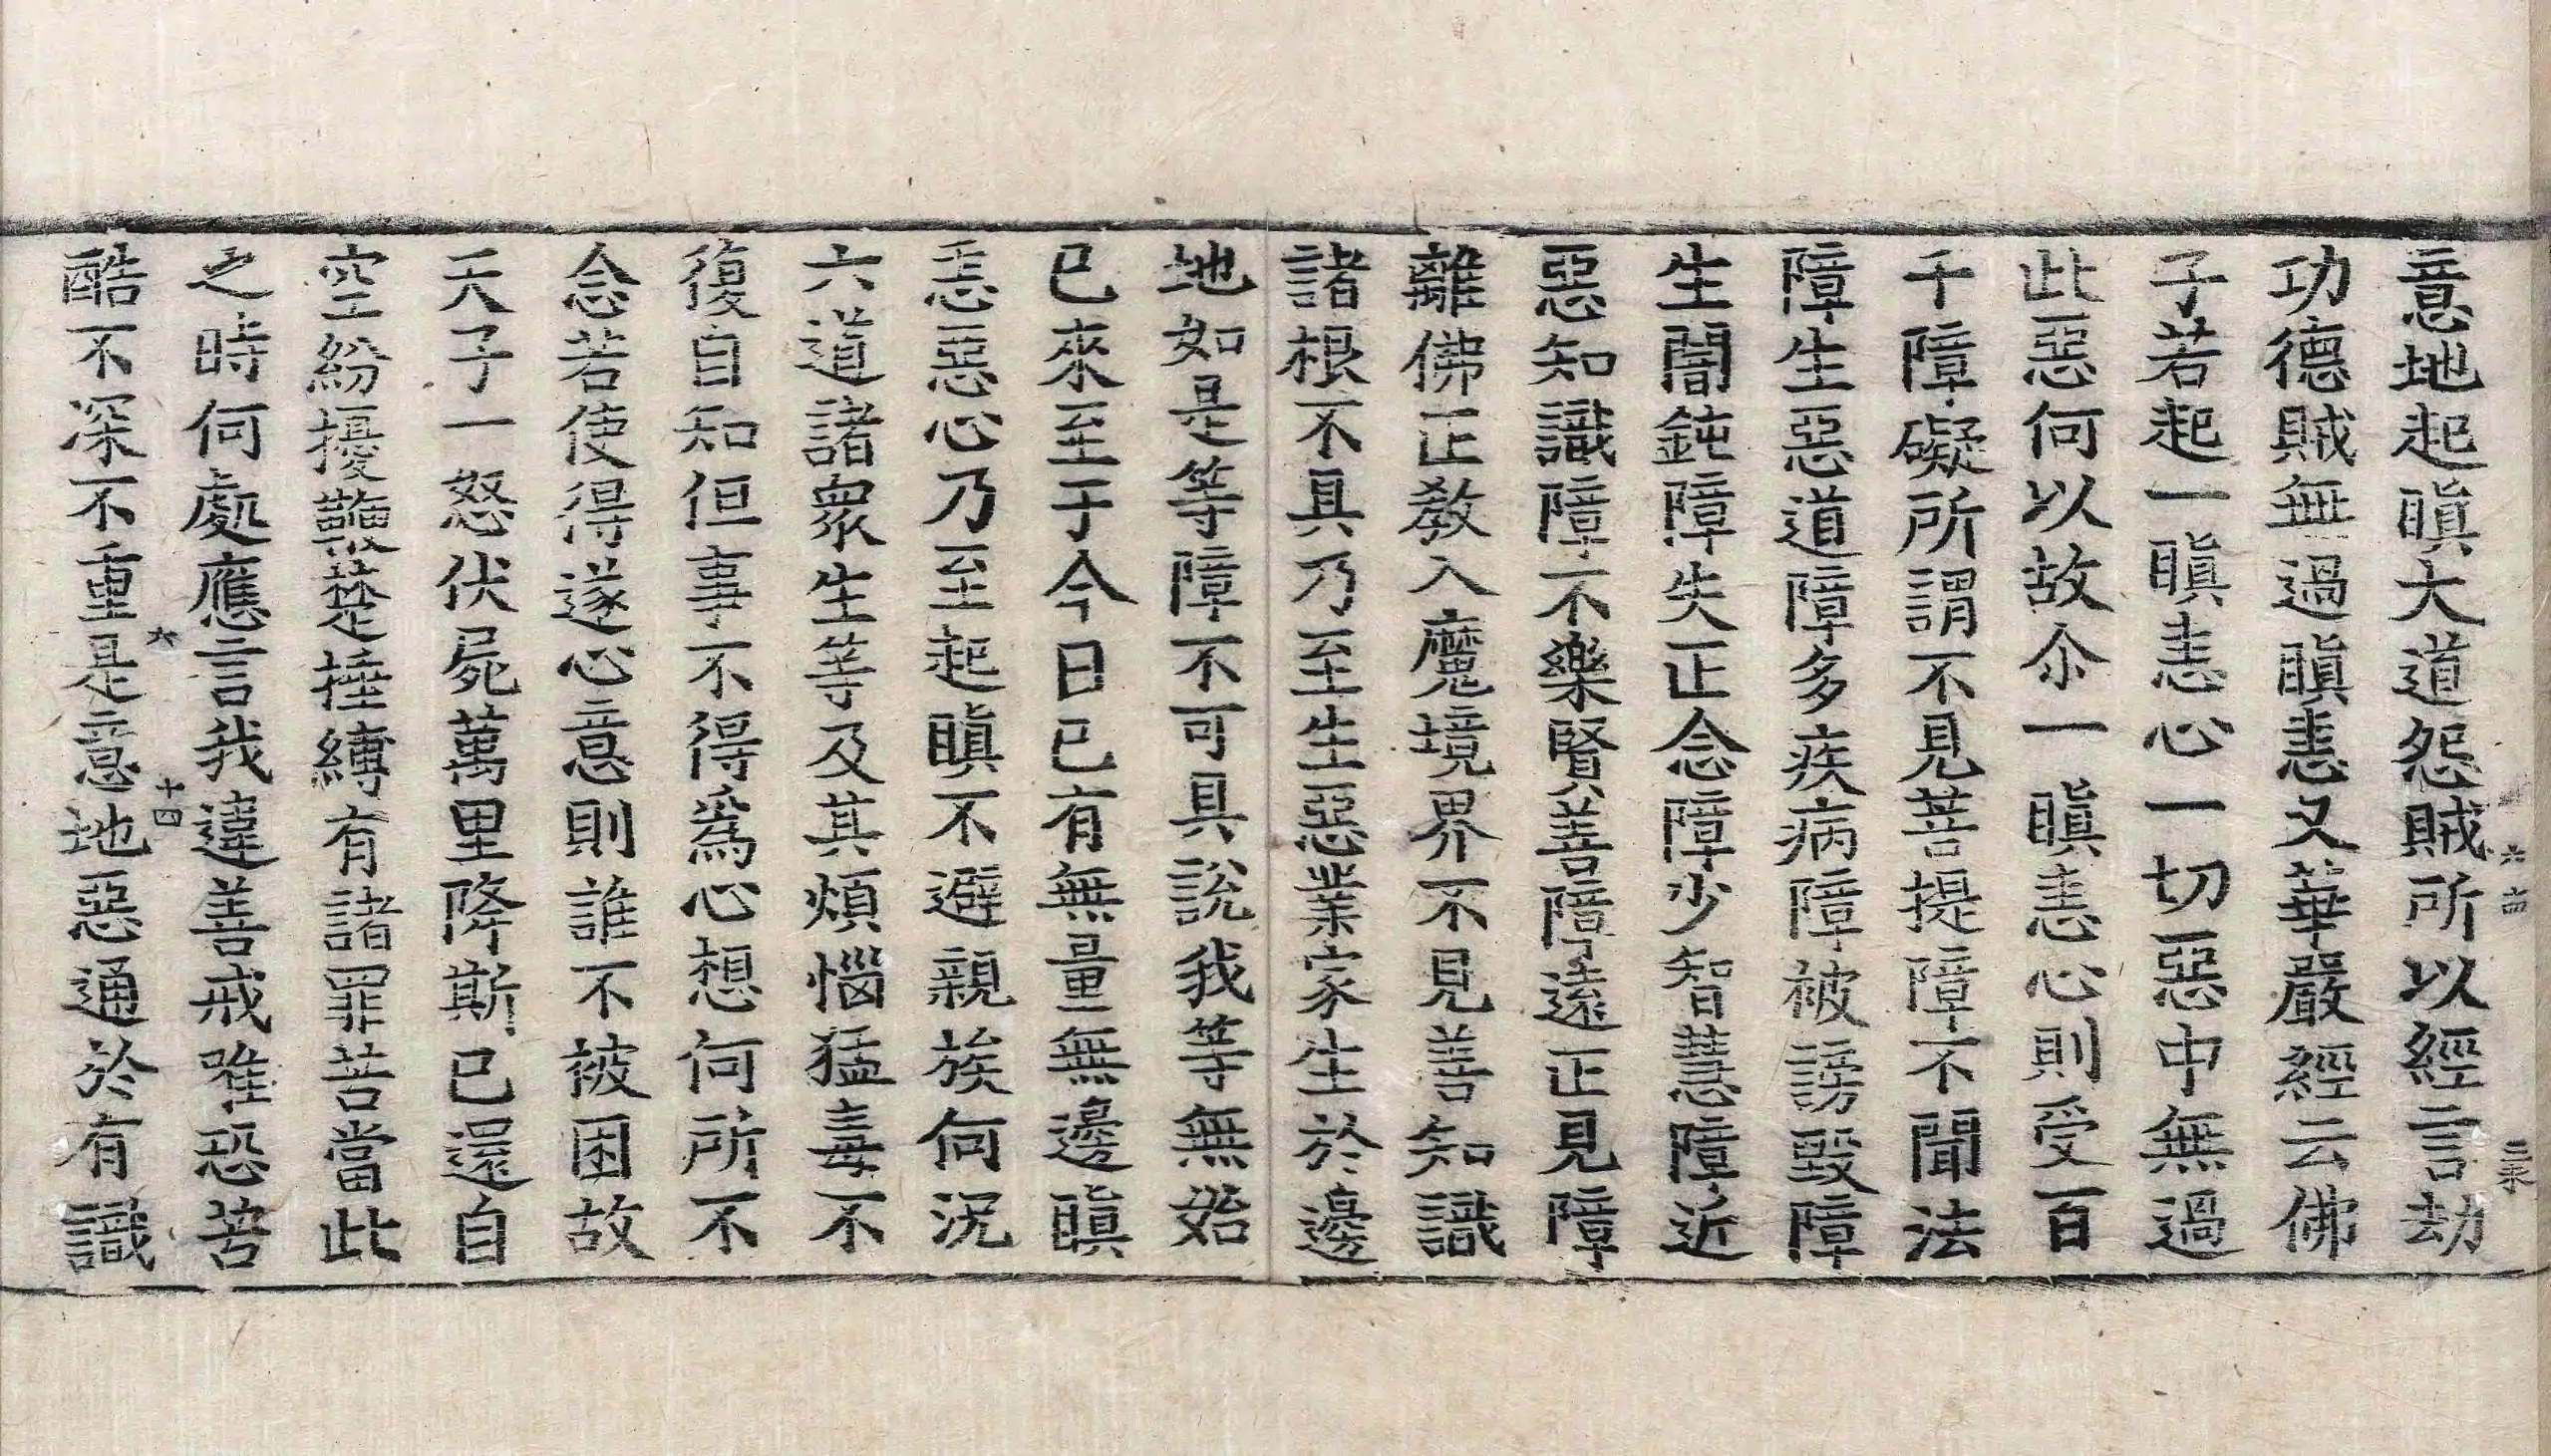 意地起瞋大道怨賊所以經言劫
功德賊無過瞋恚又華嚴經云佛
子若起一瞋恚心一切惡中無過
此惡何以故尒一瞋恚心則受百
千障礙所謂不見菩提障不聞法
障生惡道障多疾病障被謗毀障
生闇鈍障失正念障少智慧障近
惡知識障不樂賢善障遠正見障
離佛正教入魔境界不見善知識
諸根不具乃至生惡業家生於邊
地如是等障不可具說我等無始
已來至于今日已有無量無邊瞋
恚惡心乃至起瞋不避親族何況
六道諸衆生等及其煩惱猛毒不
復自知但事不得爲心想何所不
念若使得遂心意則誰不被困故
天子一怒伏屍萬里降斯已還自
空紛擾鞭楚捶縛有諸罪苦當此
之時何處應言我違善戒唯恐苦
六
十四
酷不深不重是意地惡通於有識